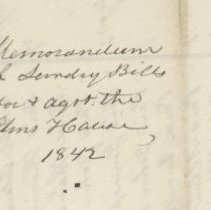 Memorandum
of Sundry Bills
for & agst. the
Alms House,
1842